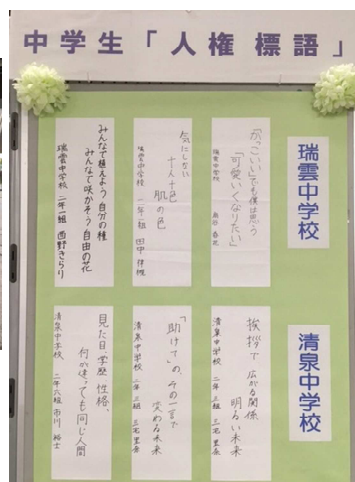 中学生「人権 標語」
瑞雲中学校
「かっこいい」でも僕は思う
「可愛いくなりたい」
瑞雲中学校
気にしない
十人十色
肌の色
瑞雲中学校 二年一組 田中
みんなで植えよう 自分の種
みんなで咲かそう 自由の花
瑞雲中学校 二年一組 西野きらり
清泉中学校
挨拶で 広がる関係
明るい未来
清泉中学校 二年 三組 三宅 里奈
「助けて」の、その一言で
変わる未来
清泉中学校 二年 三組 三宅 里奈
見た目、学歴、性格、
何が違っても同じ人間
清泉中学校 二年六組 市川 裕士